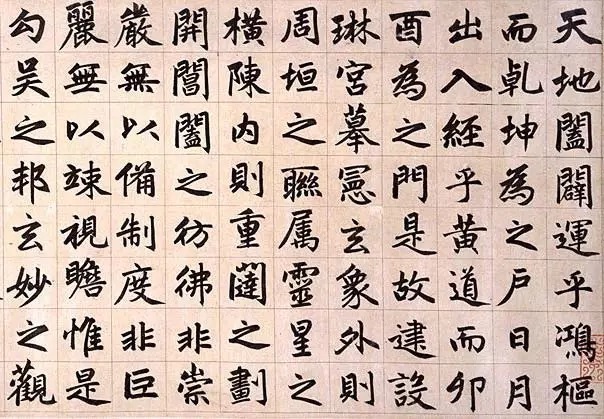 天地闔闢運乎鴻樞
而乹坤為之戶日月
出入經乎黃道而卯
酉為之門是故建設
琳宮摹憲玄象外則
周垣之聯属靈星之
橫陳內則重闥之劃
開閶闔之彷彿非崇
嚴無以備制度非巨
麗無以竦視瞻惟是
勾吴之邦玄妙之觀